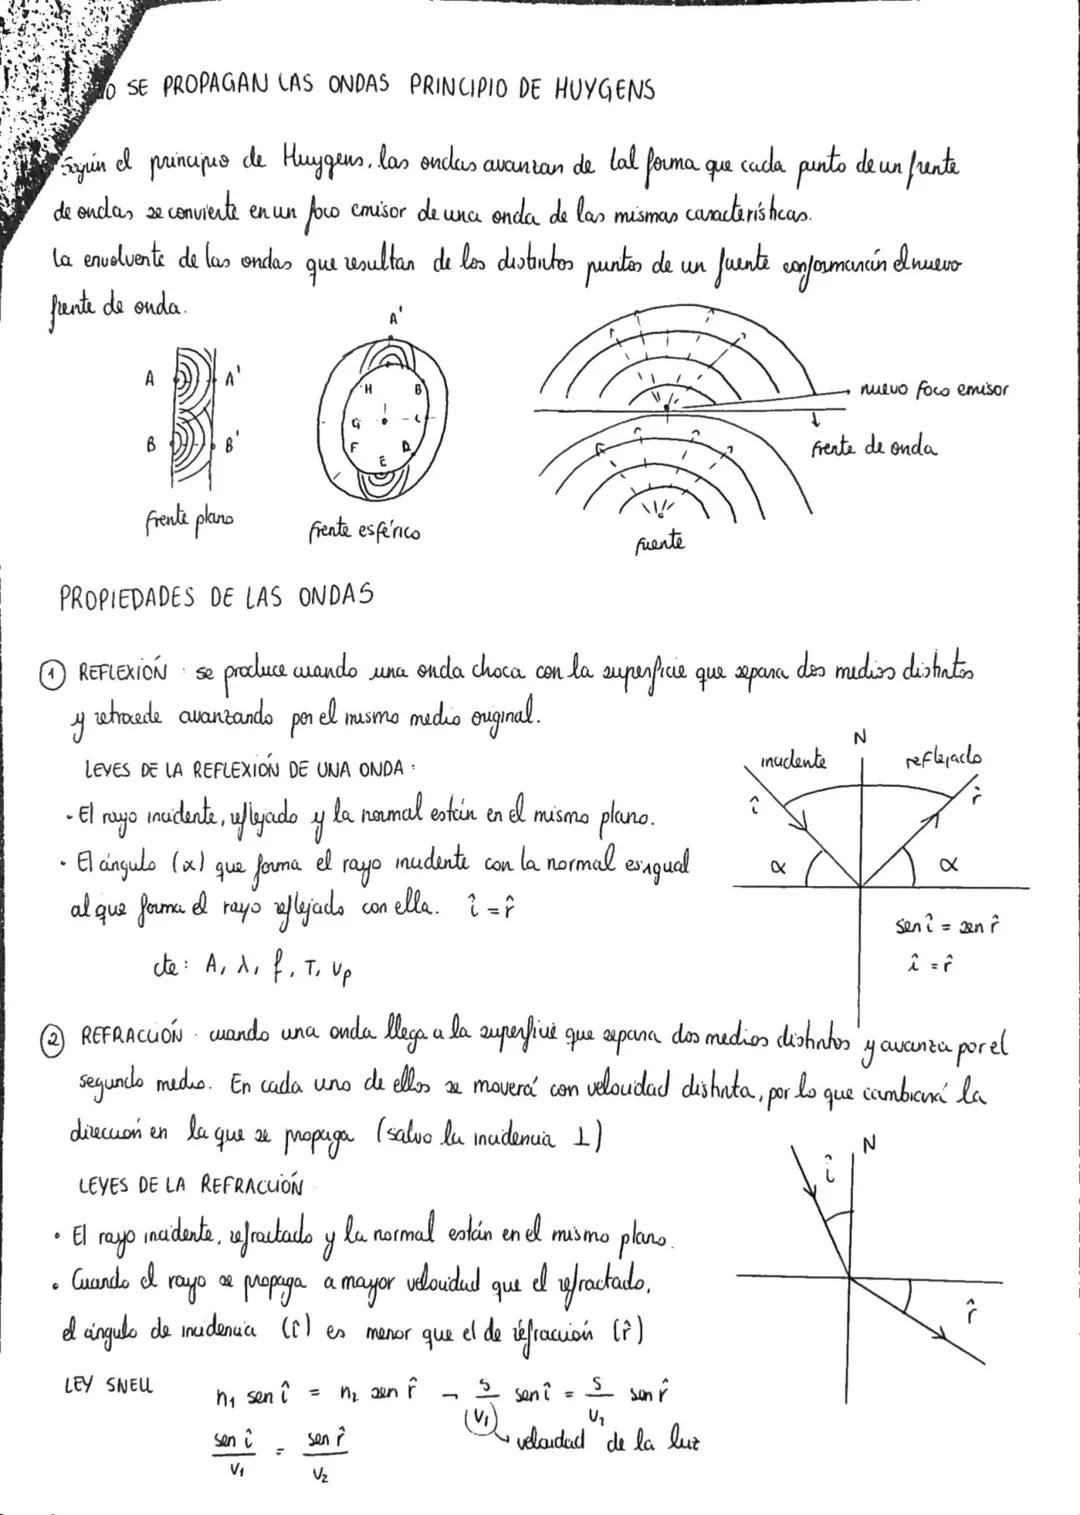 SE PROPAGAN LAS ONDAS PRINCIPIO DE HUYGENS
Según el principio de Huygens, las ondas avanzan de tal forma que cada punto de un frente
de ondas se convierte en un foco emisor de una onda de las mismas características.
La envolvente de las ondas que resultan de los distintos puntos de un fuente conformarán el nuevo
frente de onda.
A A'
B B'
frente plano
A'
H B
G C
F D
E
frente esférico
nuevo foco emisor
frente de onda
fuente
PROPIEDADES DE LAS ONDAS
1 REFLEXIÓN : se produce cuando una onda choca con la superficie que separa dos medios distintos
y retrocede avanzando por el mismo medio original.
LEYES DE LA REFLEXIÓN DE UNA ONDA :
· El rayo incidente, reflejado y la normal están en el mismo plano.
· El ángulo (α) que forma el rayo incidente con la normal es igual
al que forma el rayo reflejado con ella. î = r̂
cte: A, λ, f, T, vp
incidente N reflejado
î r̂
α α
sen î = sen r̂
î = r̂
2 REFRACCIÓN · cuando una onda llega a la superficie que separa dos medios distintos y avanza por el
segundo medio. En cada uno de ellos se moverá con velocidad distinta, por lo que cambiará la
dirección en la que se propaga (salvo la incidencia ⊥)
LEYES DE LA REFRACCIÓN
· El rayo incidente, refractado y la normal están en el mismo plano.
· Cuando el rayo se propaga a mayor velocidad que el refractado,
el ángulo de incidencia (î) es menor que el de refracción (r̂)
î N
r̂
LEY SNELL n1 sen î = n2 sen r̂ → s/v1 sen î = s/v2 sen r̂
velocidad de la luz
sen î / v1 = sen r̂ / v2